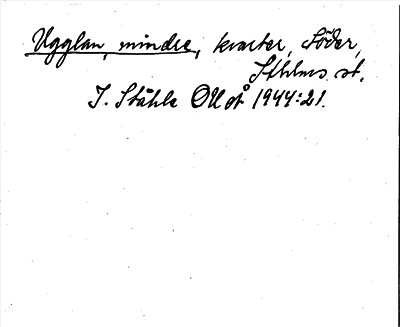 Ugglan, mindre, kvarter, Söder,
Sthlms st.
I. Ståhle OU st 1944:21.